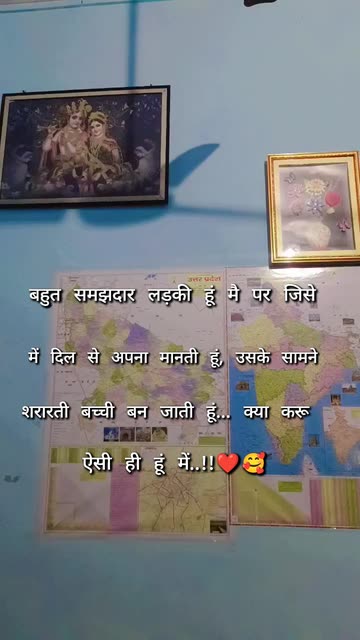 उत्तर प्रदेश
बहुत समझदार लड़की हूं मै पर जिसे
में दिल से अपना मानती हूं, उसके सामने
शरारती बच्ची बन जाती हूं... क्या करू
ऐसी ही हूं में..!!❤️🥰